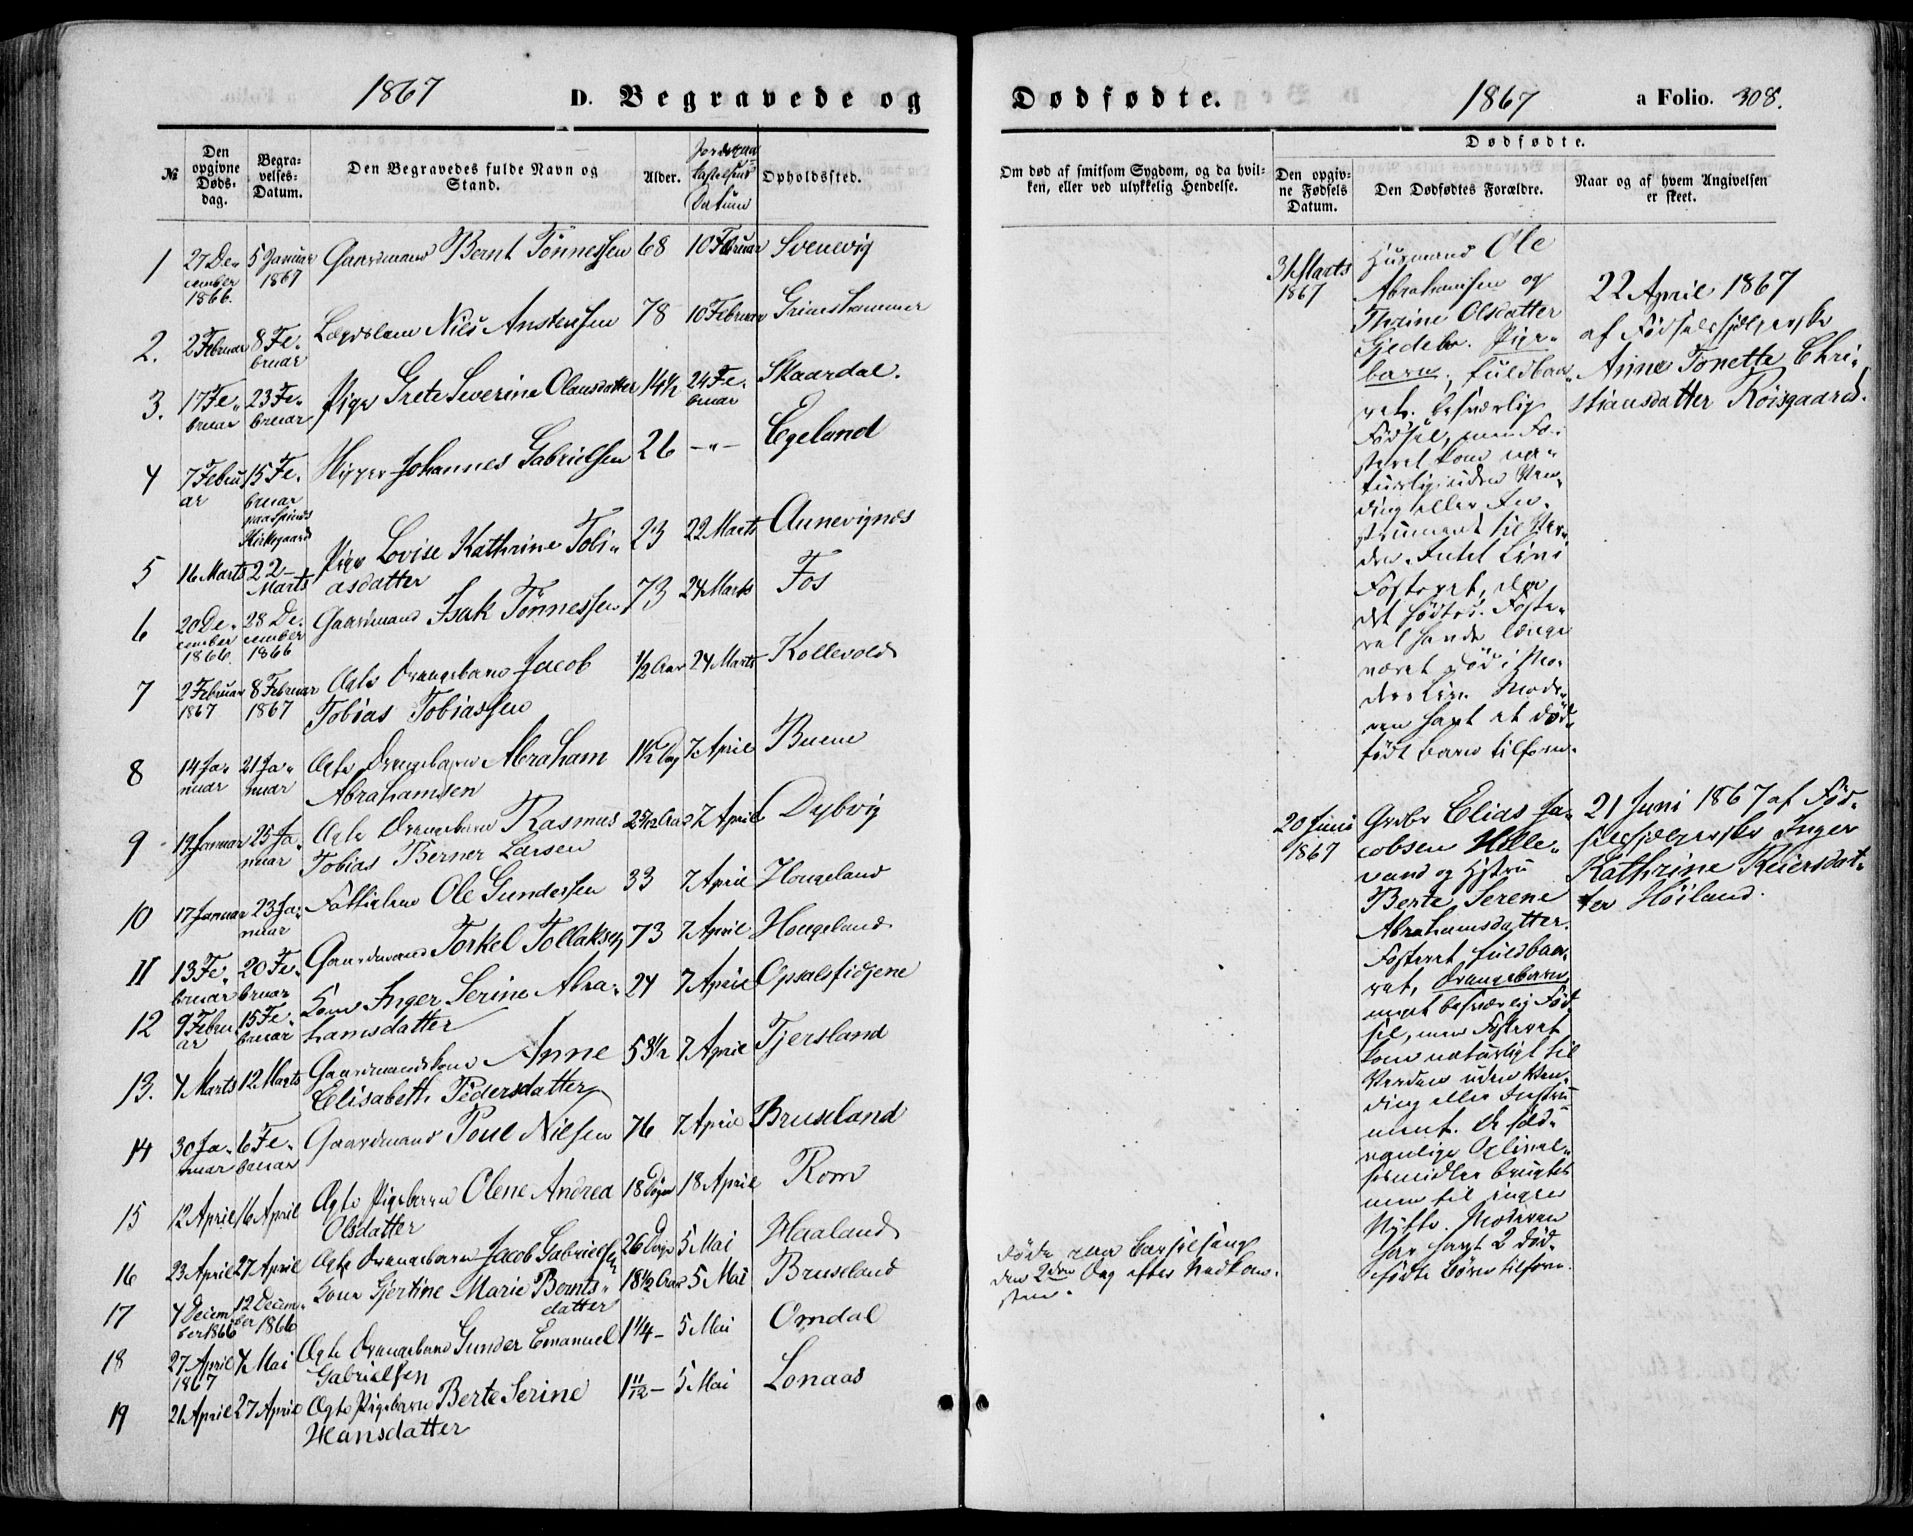 1867 D. Begravede og
№
Den opgivne Døds-dag.
Begra-velses-Datum.
Den Begravedes fulde Navn og Stand.
Alder.
Datum
Opholdssted.
1 27 De-cember 1866. 5 Januar 1867 Gaardmand Bernt Tønnessen 68 10 Februar Svenevig
2. 2 Februar 8 Fe-bruar Lægdslem Niels Anstensen 78 10 Februar Grimshammer
3. 17 Fe-bruar 23 Fe-bruar Pige Grete Severine Olausdatter 14½ 24 Fe-bruar Skaardal.
4 7 Febru-ar 15 Fe-bruar paa Spinds Kirkegaard Johannes Gabrielsen 26 -"- Egeland
5 16 Marts 22 Marts Pige Lovise Kathrine Tobi-
asdatter 23 22 Marts Aunevignes
6 20 De-cember 1866. 28 De-cember 1866 Gaardmand Isak Tønnessen 73 24 Marts Fos
7 2 Februar 1867 8 Februar 1867 Ægte Drengebarn Jacob
Tobias Tobiassen ½ Aar 24 Marts Kollevold
8 14 Ja-nuar 21 Ja-nuar Ægte Drengebarn Abraham
Abrahamsen 1½ Dag 7 April Buene
9 19 Januar 25 Ja-nuar Ægte Drengebarn Rasmus
Tobias Berner Larsen 7 April Dybvig
10 17 Januar 23 Ja-nuar Fattiglem Ole Gundersen 33 7 April Hougeland
11 13 Fe-bruar 20 Fe-bruar Gaardmand Torkel Tollaksen 73 7 April Hougeland
12 9 Febru-ar 15 Fe-bruar Kone Inger Serine Abra-
hamsdatter 24 7 April Opsalsfidjene
13. 4 Marts 12 Marts Gaardmandskone Anne
Elisabeth Pedersdatter 53½ 7 April Tjersland
14 30 Ja-nuar 6 Fe-bruar Gaardmand Poul Nilsen 76 7 April Bruseland
15 12 April 16 April Ægte Pigebarn Olene Andrea
Olsdatter 18 Dage 18 April Rom
16 23 April 27 April Ægte Drengebarn Jacob Gabrielsen 26 Dage 5 Mai Haaland
17 4 Decem-ber 1866 12 Decem-ber 1866 Kone Gjertine Marie Bernts-
datter 18½ Aar 5 Mai Bruseland
18 27 April 1867 4 Mai Ægte Drengebarn Gunder Emanuel
Gabrielsen 1¼ - 5 Mai Omdal
19 21 April 27 April Ægte Pigebarn Berte Serine
Hansdatter 1 11/12 - 5 Mai Lonaas
Dødfødte. 1867 a Folio. 308.
Om død af smitsom Sygdom, og da hvil-
ken, eller ved ulykkelig Hendelse.
Dødfødte.
Den opgiv-
ne Fødsels
Datum.
Den Dødfødtes Forældre.
Naar og af hvem Angivelsen
er skeet.
31 Marts
1867
Husmand Ole
Abrahamsen og
Thrine Olsdatter
Gjedebo. Pige-
barn, fuldbaa-
ret. besværlig
Fødsel, men Fo-
steret kom na-
turlig uden Ven-
ding eller In-
strument til Ver-
den. Intet Liv i
Fosteret, da
det fødtes. Foste-
ret havde længe
været død i Mo-
ders Liv. Mode-
ren havt et død-
født barn tilforn.
22 April 1867
af Fødselshjelperske
Anne Tonette Chri-
stiansdatter Røisgaard.
20 Juni
1867
Grdbr Elias Ja-
cobsen Helle-
vand og Hstru
Berte Serene
Abrahamsdatter.
Fosteret fuldbaa-
ret, Drengebarn,
meget besværlig Fød-
sel, men Fosteret
kom naturligt til
Verden uden Ven-
ding eller Instru-
ment. De sæd-
vanlige Oplivel-
sesmidler brugtes
men til ingen
Nytte. Moderen
har havt 2 død-
fødte Børn tilforn.
21 Juni 1867 af Fød-
selshjelperske Inger
Kathrine Reiersdat-
ter Høiland.
Døde efter Barselseng
den 2den Dag efter Nedkom-
sten.